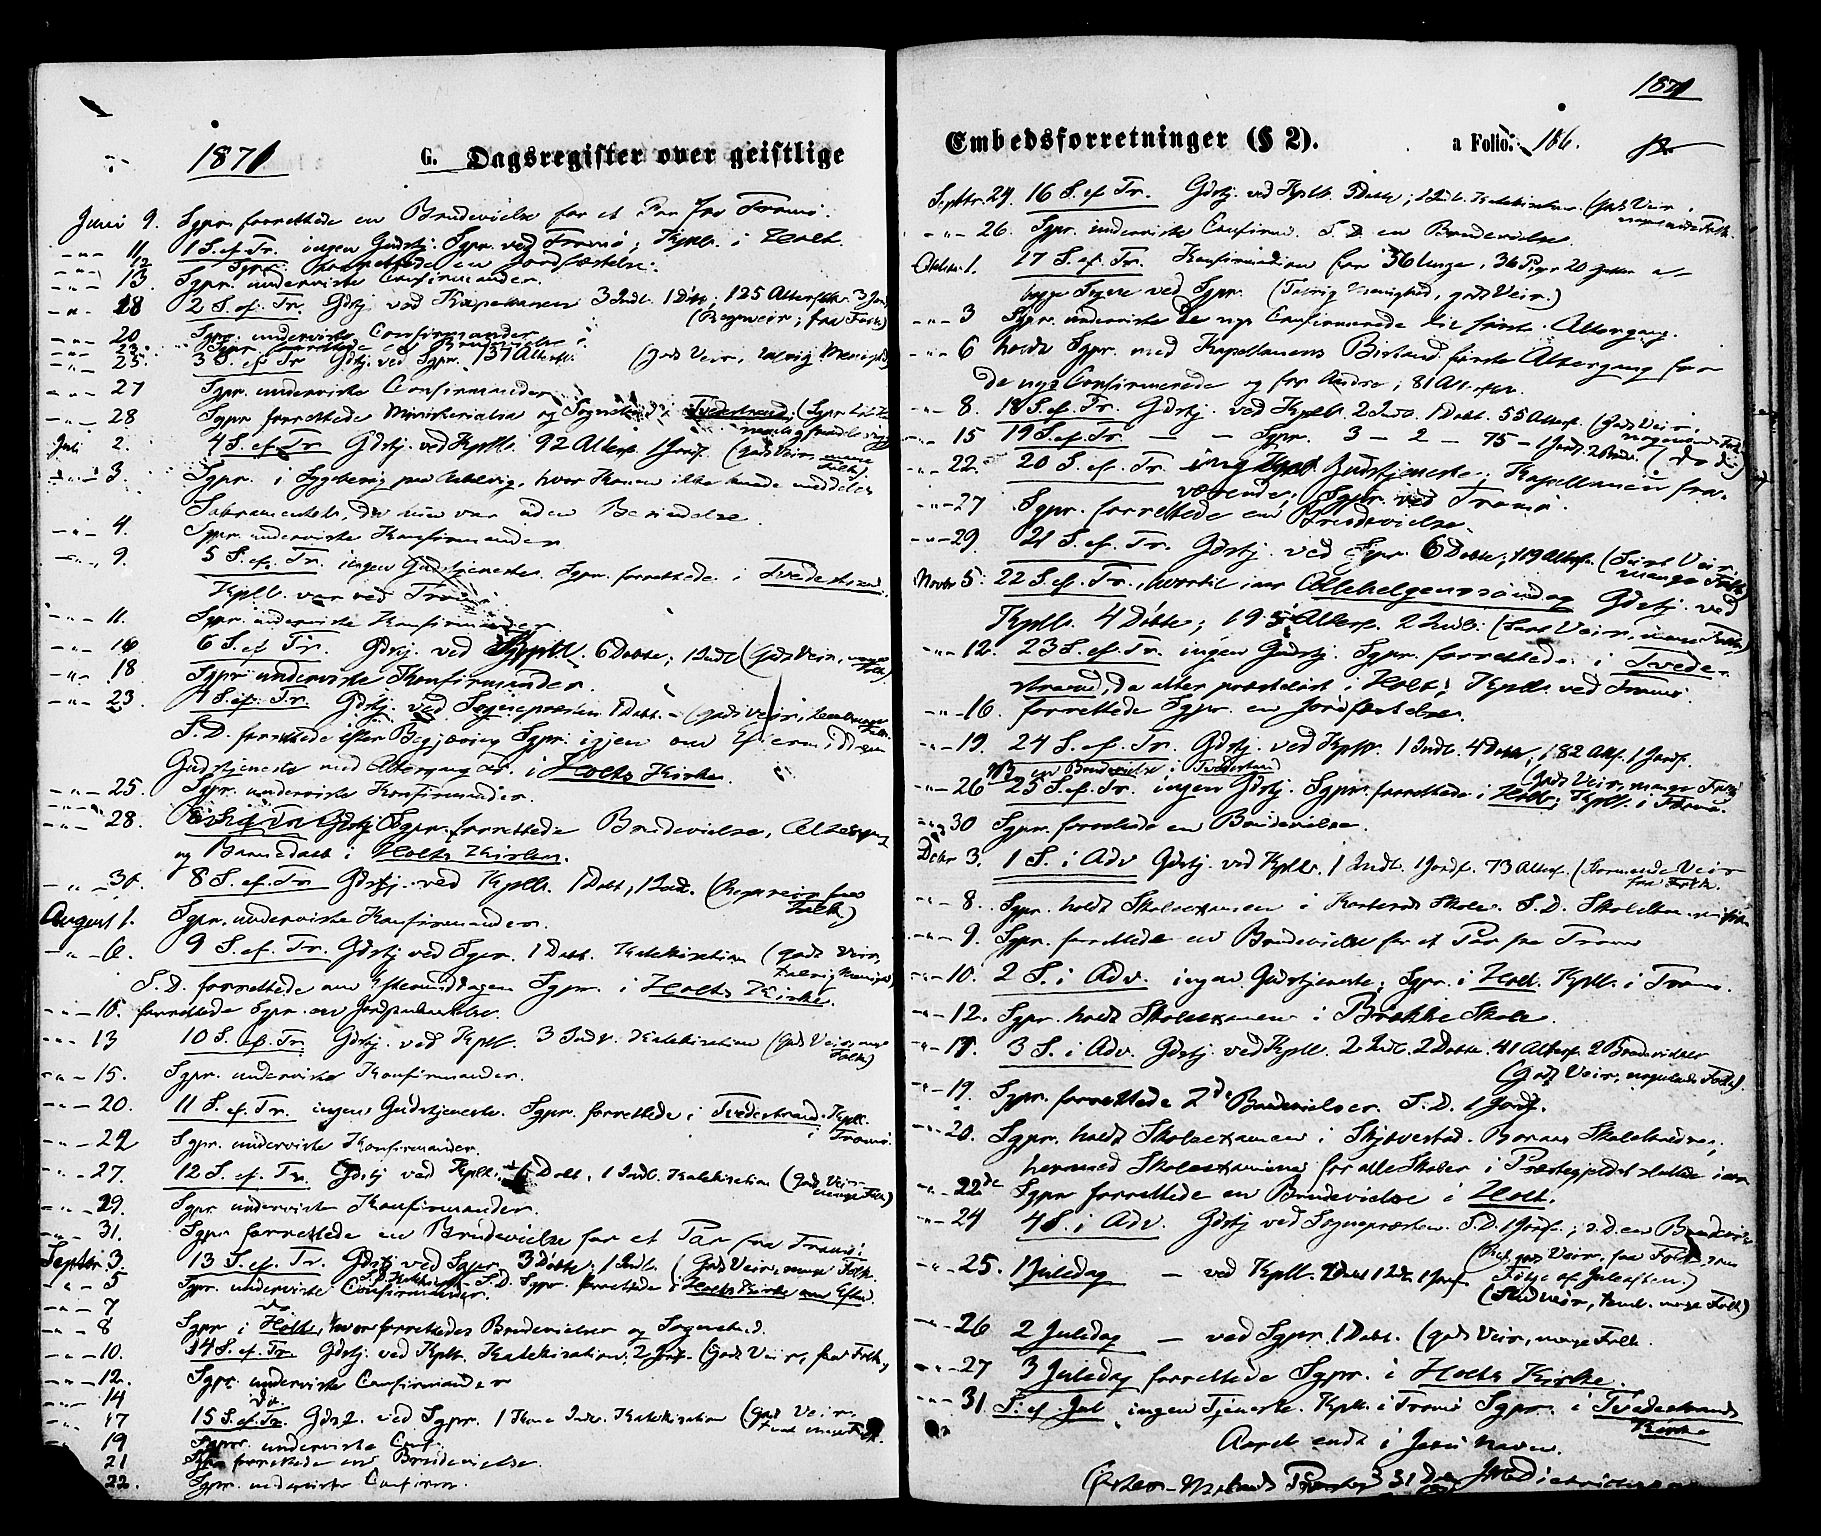 1871 G. Dagsregister over geistlige
Juni 9. Sgpr. forrettede en Brudevielse for et Par fra Tromø.
11. 1 S. ef. Tr. ingen Gudstj. Sgpr. ved Tromø; Kpll. i Holt.
12 Sgpr. forrettede en Jordfæstelse.
13. Sgpr. underviste Confirmander.
18 2 S. ef. Tr. Gdstj. ved Kapellanen 3 Indl. 1 Dbt; 125 Altersgj. 3 Jordf.
(Regnveir; faa Folk)
20 Sgpr. underviste Confirmander.
23. Sgpr. forrettede en Brudevielse
25. 3 S. ef Tr Gdstj. ved Sgpr. 137 Altersg. (godt Veir, talrig Menighed)
27 Sgpr. underviste Confirmander
28 Sgpr. forrettede Ministerialia og Sognebud i Tvedestrand;
Juli 2. 4 S. ef. Tr. Gdstj. ved Kpll. 92 Altersg. 1 Jordf. (godt Veir, mange Folk)
3. Sgpr. i Sygebesøg paa, hvor Konen ikke kunde meddeles
Sakramentet, da hun var uden Besindelse.
4. Sgpr. underviste Konfirmander
9. 5 S. ef. Tr. ingen Gudstjeneste. Sgpr. forrettede i Tvedestrand.
Kpll. var ved Tromø.
11. Sgpr. underviste Konfirmander
16 6 S. ef Tr. Gdstj. ved Kpll. 6 Døbte; 1 Indl (godt Veir, mange Folk)
18 Sgpr underviste Konfirmander.
23 7 S. ef. Tr. Gdstj. ved Sognepræsten 1 Døbt. (godt Veir,
S. D. forrettede efter Begjæring Sgpr. igjen om Eftermiddagen
Gudstjeneste med Altergang i Holts Kirke.
25. Sgpr. underviste Konfirmander.
28. Sgpr. forrettede Brudevielse, Altergang
og Barnedaab i Holts Kirke.
30. 8 S. ef. Tr Gdstj. ved Kpll. 1 Døbt, 1 Indl. (Regnveir, faa Folk)
August 1. Sgpr. underviste Konfirmander.
6. 9 S. ef. Tr. Gdstj ved Sgpr. 1 Døbt. Katekisation (godt Veir, talrig Menighed)
S. D. forrettede om Eftermiddagen Sgpr. i Holts Kirke.
forrettede Sgpr. en Jordpaakastelse.
13 10 S. ef. Tr. Gdstj. ved Kpll. 3 Indl. Katekisation (godt Veir, mange Folk)
15. Sgpr. underviste Konfirmander.
20. 11 S. ef. Tr. ingen Gudstjeneste. Sgpr. forrettede i Tvedestrand. Kpll.
i Tromø.
22 Sgpr. underviste Konfirmander.
27. 12 S. ef. Tr. Gdstj ved Kpll. Døbt, 1 Indl. Katekisation (godt Veir, mange Folk)
29. Sgpr. underviste Konfirmander.
31. Sgpr forrettede en Brudevielse for et Par fra Tromø.
Septbr 3. 13 S. ef. Tr. Gdstj ved Sgpr. 3 Døbte; 1 Indl. (Godt Veir, mange Folk.
S. D. Sgpr. forrettede i Holts Kirke om Efterm.
5 Sgpr. underviste Confirmander.
7 do
8 Sgpr i Holt, hvor forrettedes Brudevielser og Sognebud.
10. 14 S. ef. Tr. Gdstj. ved Kpll. Katekisation. 2 Jordf. (Godt Veir, faa Folk)
12. Sgpr. underviste Confirmander
14 do.
17 15 S. ef. Tr. Gdstj. ved Sgpr. 1 Kone Indl. Katekisation (godt Veir,
19 Sgpr. underviste Conf.
21 Sgpr forrettede en Brudevielse.
22. Sgpr. underviste Confirm.
1871
Embedsforretninger (§ 2). a Folio: 186.
Septbr. 24. 16 S. ef Tr. Gdstj. ved Kpll. Døbte; Indl. Katekisation (godt Veir, nogenlunde Folk.
26. Sgpr. underviste Confirm. S. D. en Brudevielse.
Oktober 1. 17 S. ef. Tr. Konfirmation for 36 Unge, Piger 20 Gutter
begge Sogne ved Sgpr. (Talrig Menighed, godt Veir.)
3 Sgpr. underviste de nys Confirmerede til første Altergang.
6 holdt Sgpr. med Kapellanens Bistand første Altergang for
de nys Confirmerede og for Andre; 81 Alt.
8. 18 S. ef. Tr. Gdstj. ved Kpll. 2 Indl. 1 Døbt. 55 Altersg. (Godt Veir,
15 19 S. ef. Tr — — Sgpr. 3 — 2 — 75 — 1 Jordf. (do do)
22. 20 S. ef. Tr. ingen Gudstjeneste; Kapellanen fra-
værende; Sgpr. ved Tromø.
27 Sgpr. forrettede en Brudevielse.
29. 21 S. ef. Tr. Gdstj. ved Sgpr. 6 Døbte; 119 Altersg. (Surt Veir, mange Folk)
Novbr 5. 22 S. ef. Tr., hvortil var Allehelgenssøndag Gdstj. ved
Kpll. 4 Døbte; 195 Altersg. 2 Indl. (Surt Veir, mange Folk)
12. 23 S. ef. Tr. ingen Gudstj. Sgpr. forrettede i Tvede-
strand, da atter præsteløst i Holt; Kpll. ved Tromø.
16. forrettede Sgpr. en Jordfæstelse.
19. 24 S. ef. Tr. Gdstj. ved Kpll. 1 Indl. 4 Døbte, 82 Alt. 1 Jordf.
en Brudevielse i Tvedestrand (godt Veir, mange Folk)
26 25 S. ef. Tr. ingen Gdstj. Sgpr. forrettede i Holt; Kpll. i Tromø.
30 Sgpr. forrettede en Brudevielse.
Dcbr 3. 1 S. i Adv Gdstj. ved Kpll. 1 Indl. 1 Jordf. 73 Altersg. (Stormende Veir
faa Folk.
8. Sgpr. holdt Skoleexamen i Skole. S. D.
9. Sgpr. forrettede en Brudevielse for et Par fra Tromø
10. 2 S. i Adv. ingen Gudstjeneste; Sgpr. i Holt. Kpll. i Tromø.
12. Sgpr. holdt Skoleexamen i Brække Skole.
17. 3 S. i Adv. Gdstj. ved Kpll. 2 Indl. 2 Døbte. 41 Altersg. 2 Brudevielser
(Godt Veir, nogenlunde Folk).
19. Sgpr. forrettede 2de Brudevielser. S. D. 1 Jordf.
20. Sgpr. holdt Skoleexamen i Skjævestad - Boraas Skolekreds;
hermed Skoleexamina for alle Skoler i Præstegjeldet
22de Sgpr forrettede en Brudevielse i Holt.
24 4 S. i Adv. Gdstj ved Sognepræsten. S. D. 1 Jordf.; s. D. en Brudevielse
Veir, faa Folk, som
Følge af Juleaften.)
25. 1 Juledag — ved Kpll. 1 Indl. 1 Jordf.
26 2 Juledag — ved Sgpr. 1 Døbt. (godt Veir, mange Folk.
27 3 Juledag forrettede Sgpr. i Holts Kirke.
31. S. ef. Jul ingen Tjeneste. Kpll. i Tromø Sgpr. i Tvedestrands
Kirke
Aaret endt i Jesu Navn.
31 Dcbr